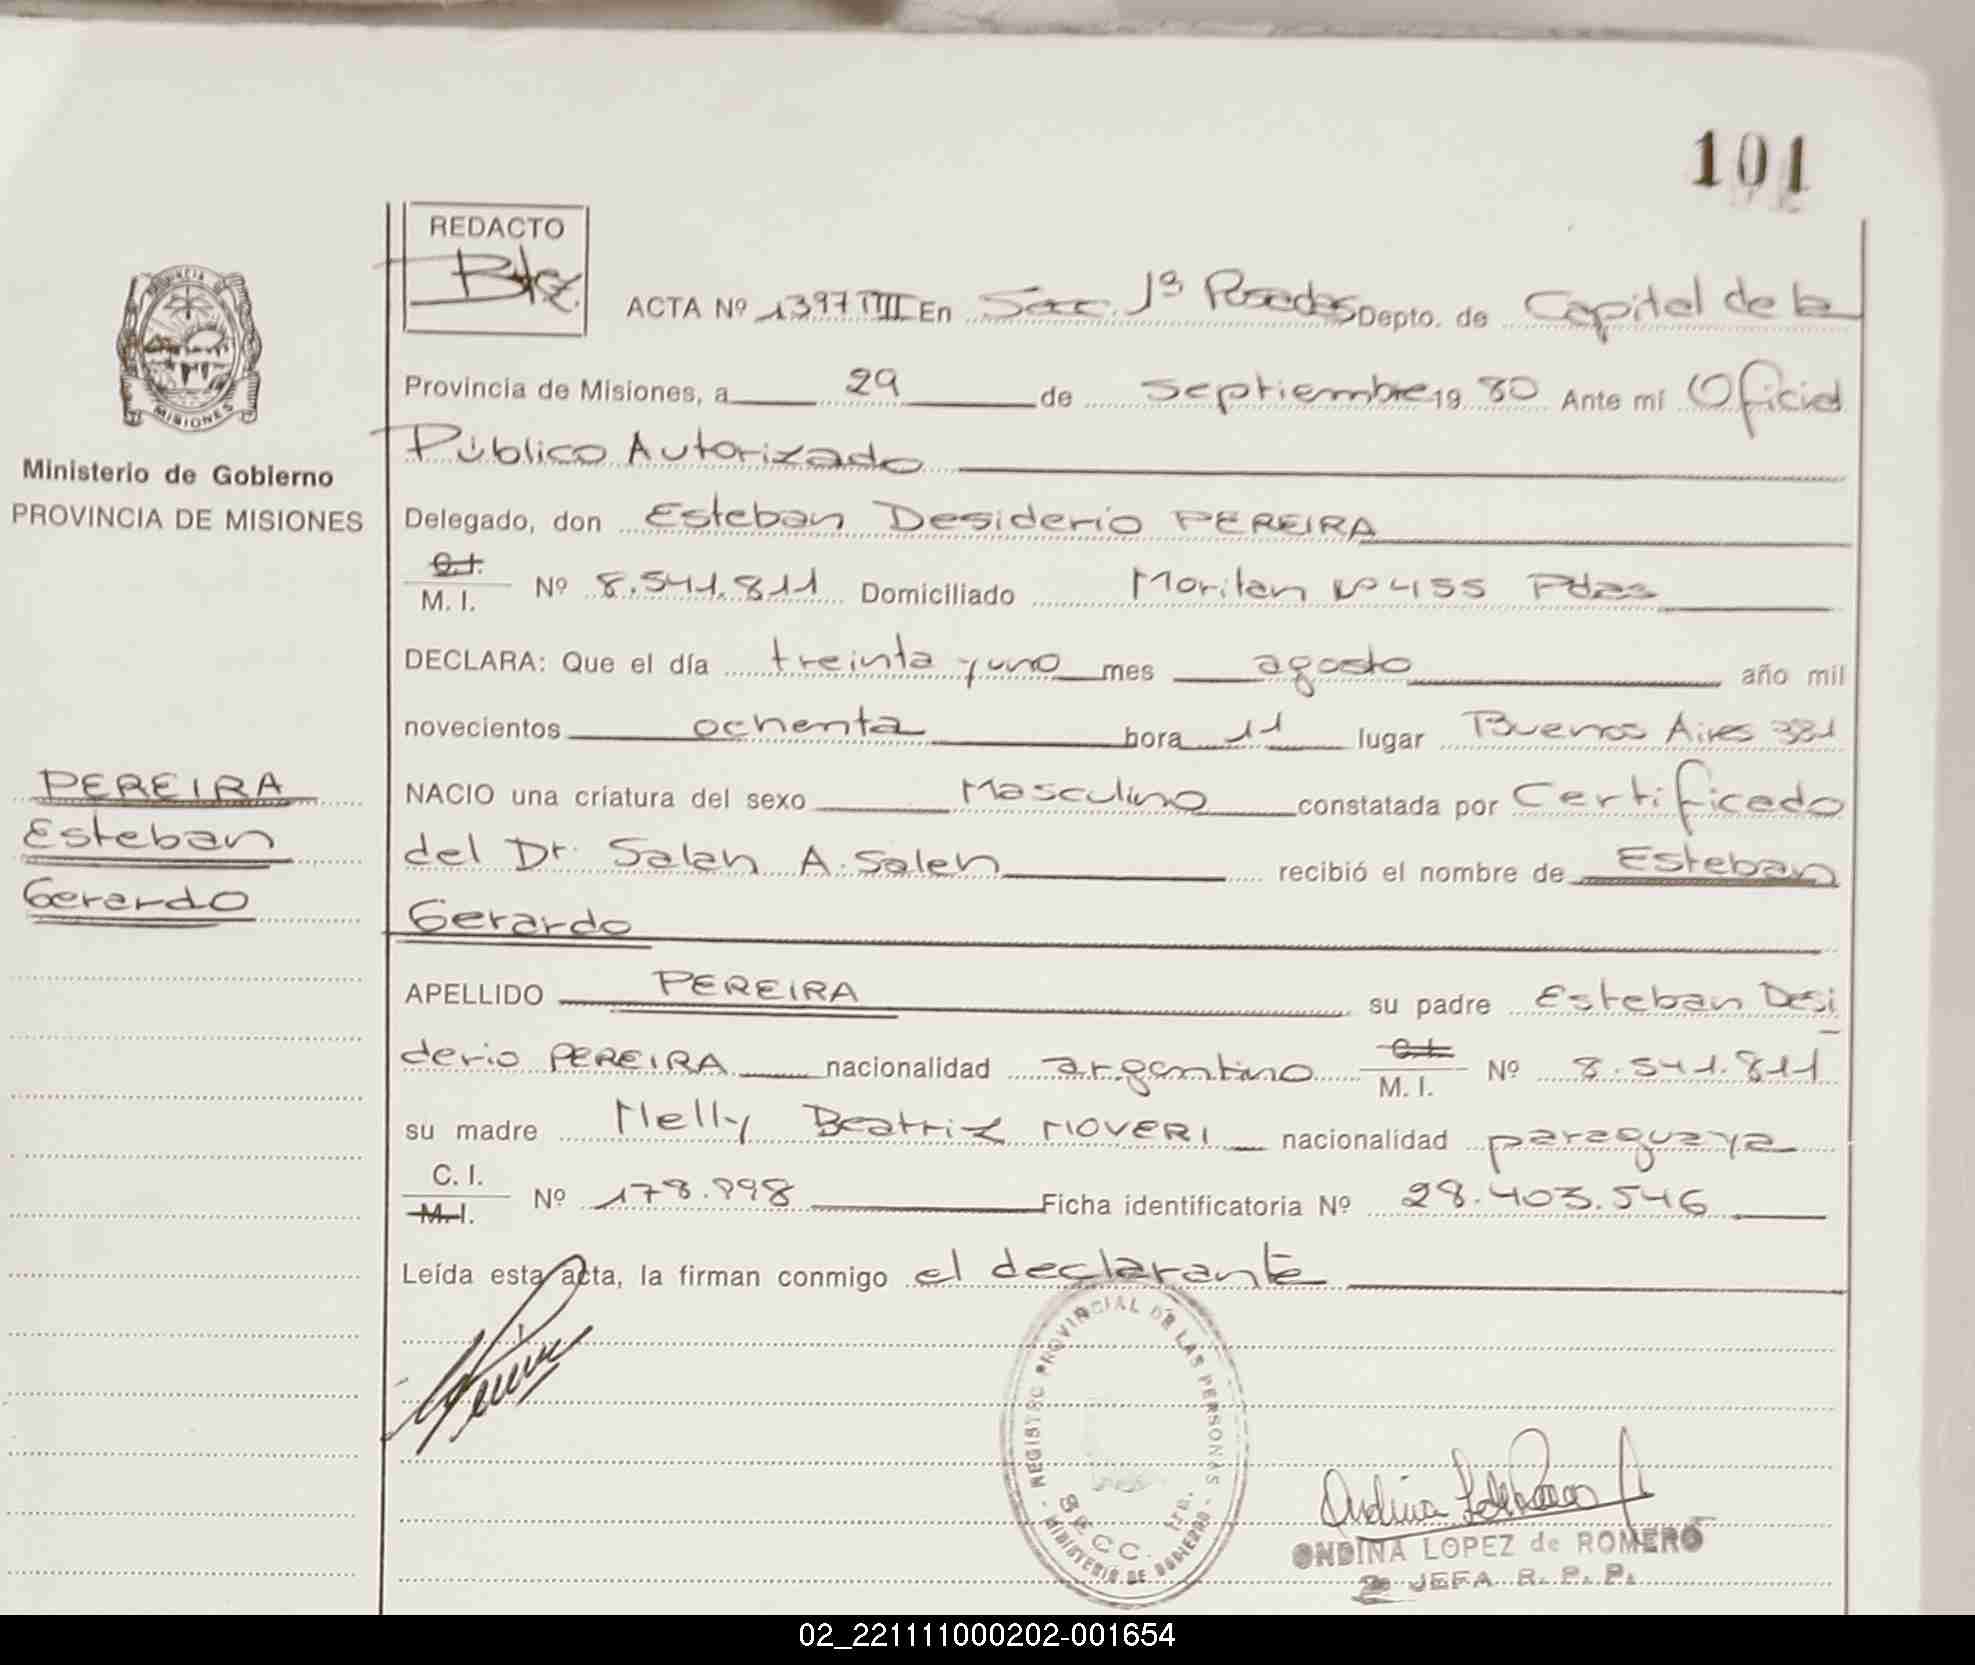 101
REDACTO
ACTA Nº 1397 TIII En Sec. 1ª Posadas Depto. de Capital de la
Provincia de Misiones, a 29 de septiembre 19 80 Ante mí Oficial
Público Autorizado
PROVINCIA DE MISIONES
Ministerio de Gobierno
PROVINCIA DE MISIONES
Delegado, don Esteban Desiderio PEREIRA
C.I. M. I. Nº 8.541.811 Domiciliado Nº 455 Pdas
DECLARA: Que el día treinta y uno mes agosto año mil
novecientos ochenta hora 11 lugar Buenos Aires 381
PEREIRA
Esteban
Gerardo
NACIO una criatura del sexo Masculino constatada por Certificado
del Dr. Salan A. Salen recibió el nombre de Esteban
Gerardo
APELLIDO PEREIRA su padre Esteban Desi
derio PEREIRA nacionalidad argentino C.I. M. I. Nº 8.541.811
su madre Nelly Beatriz NOVERI nacionalidad paraguaya
C. I. M. I. Nº 178.998 Ficha identificatoria Nº 28.403.546
Leída esta acta, la firman conmigo el declarante
REGISTRO PROVINCIAL DE LAS PERSONAS
SECC. 1ra.
MINISTERIO DE GOBIERNO
ONDINA LOPEZ de ROMERO
JEFA R. P. P.
02_221111000202-001654